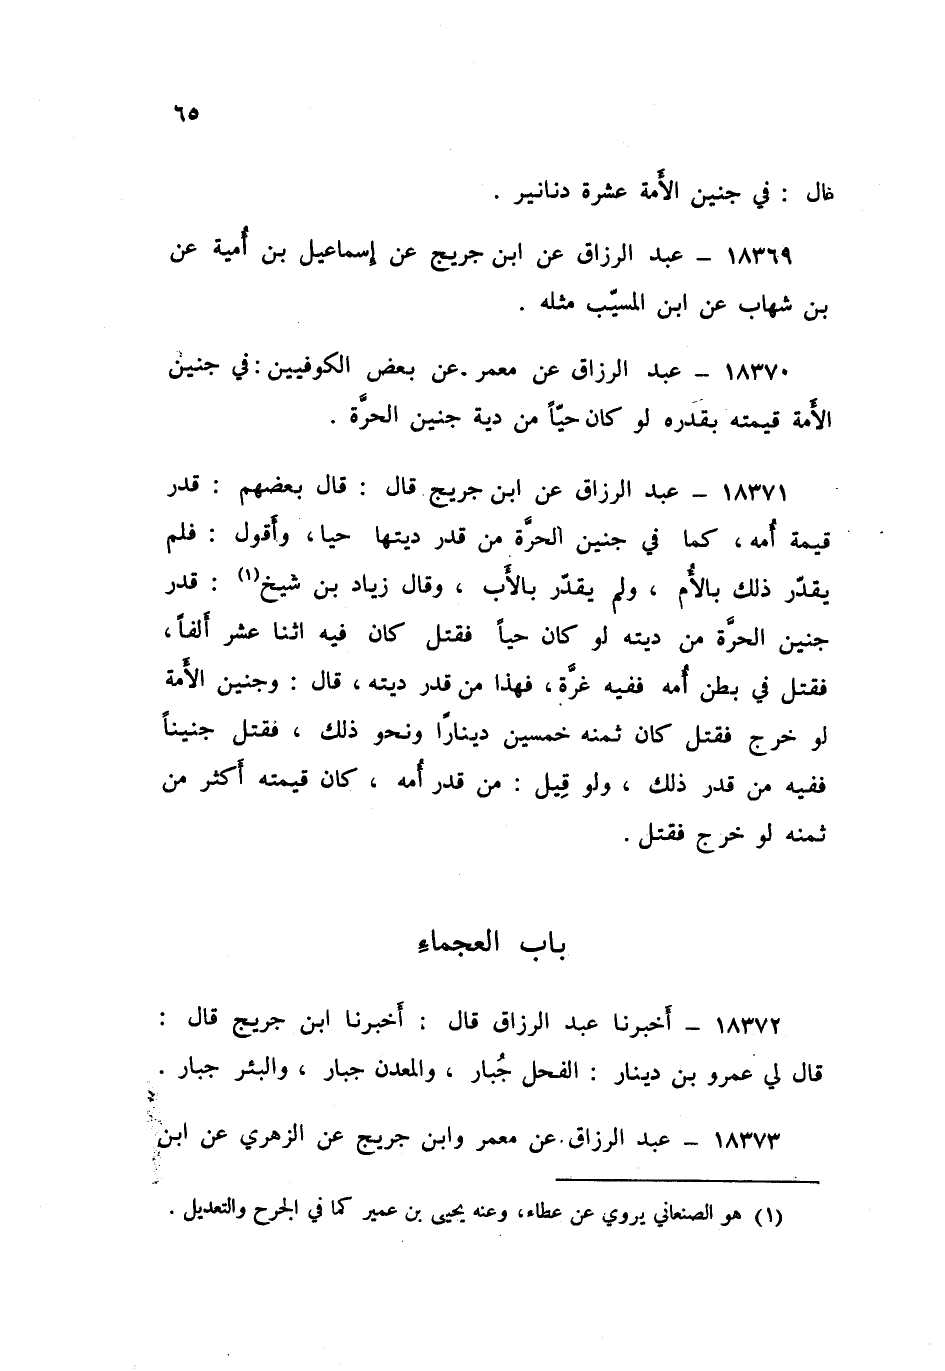 ٦٥
قال : في جنين الأَمة عشرة دنانير .
١٨٣٦٩ – عبد الرزاق عن ابن جريج عن إسماعيل بن أُمية عن
بن شهاب عن ابن المسيّب مثله .
١٨٣٧٠ – عبد الرزاق عن معمر عن بعض الكوفيين : في جنين
الأَمة قيمته بقدره لو كان حيّاً من دية جنين الحرَّة .
١٨٣٧١ – عبد الرزاق عن ابن جريج قال : قال بعضهم : قدر
قيمة أُمه ، كما في جنين الحرَّة من قدر ديتها حيا ، وأَقول : فلم
يقدّر ذلك بالأُم ، ولم يقدّر بالأَب ، وقال زياد بن شيخ(١) : قدر
جنين الحرَّة من ديته لو كان حياً فقتل كان فيه اثنا عشر أَلفاً ،
فقتل في بطن أُمه ففيه غرَّة ، فهذا من قدر ديته ، قال : وجنين الأَمة
لو خرج فقتل كان ثمنه خمسين دينارًا ونحو ذلك ، فقتل جنيناً
ففيه من قدر ذلك ، ولو قِيل : من قدر أُمه ، كان قيمته أَكثر من
ثمنه لو خرج فقتل .
باب العجماءِ
١٨٣٧٢ – أَخبرنا عبد الرزاق قال : أَخبرنا ابن جريج قال :
قال لي عمرو بن دينار : الفحل جُبار ، والمعدن جبار ، والبئر جبار .
١٨٣٧٣ – عبد الرزاق عن معمر وابن جريج عن الزهري عن ابن
(١) هو الصنعاني يروي عن عطاء ، وعنه يحيى بن عمير كما في الجرح والتعديل .